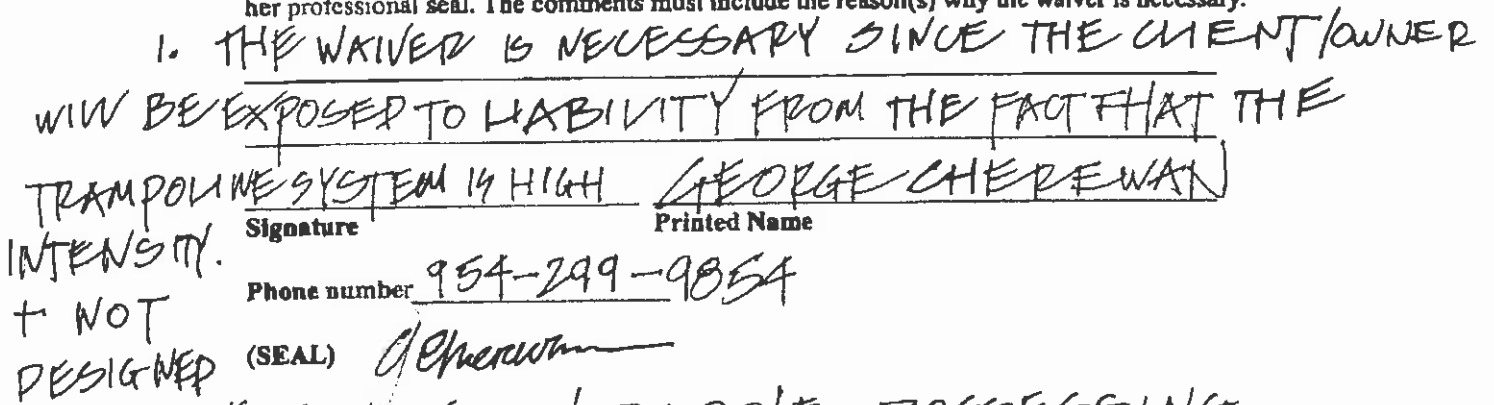 her professional seal. The comments must include the reason(s) why the waiver is necessary.
1. THE WAIVER IS NECESSARY SINCE THE CLIENT/OWNER
WILL BE EXPOSED TO LIABILITY FROM THE FACT THAT THE
TRAMPOLINE SYSTEM IS HIGH GEORGE CHEREWAN
Signature Printed Name
INTENSITY.
Phone number 954-299-9854
+ NOT
(SEAL)
DESIGNED